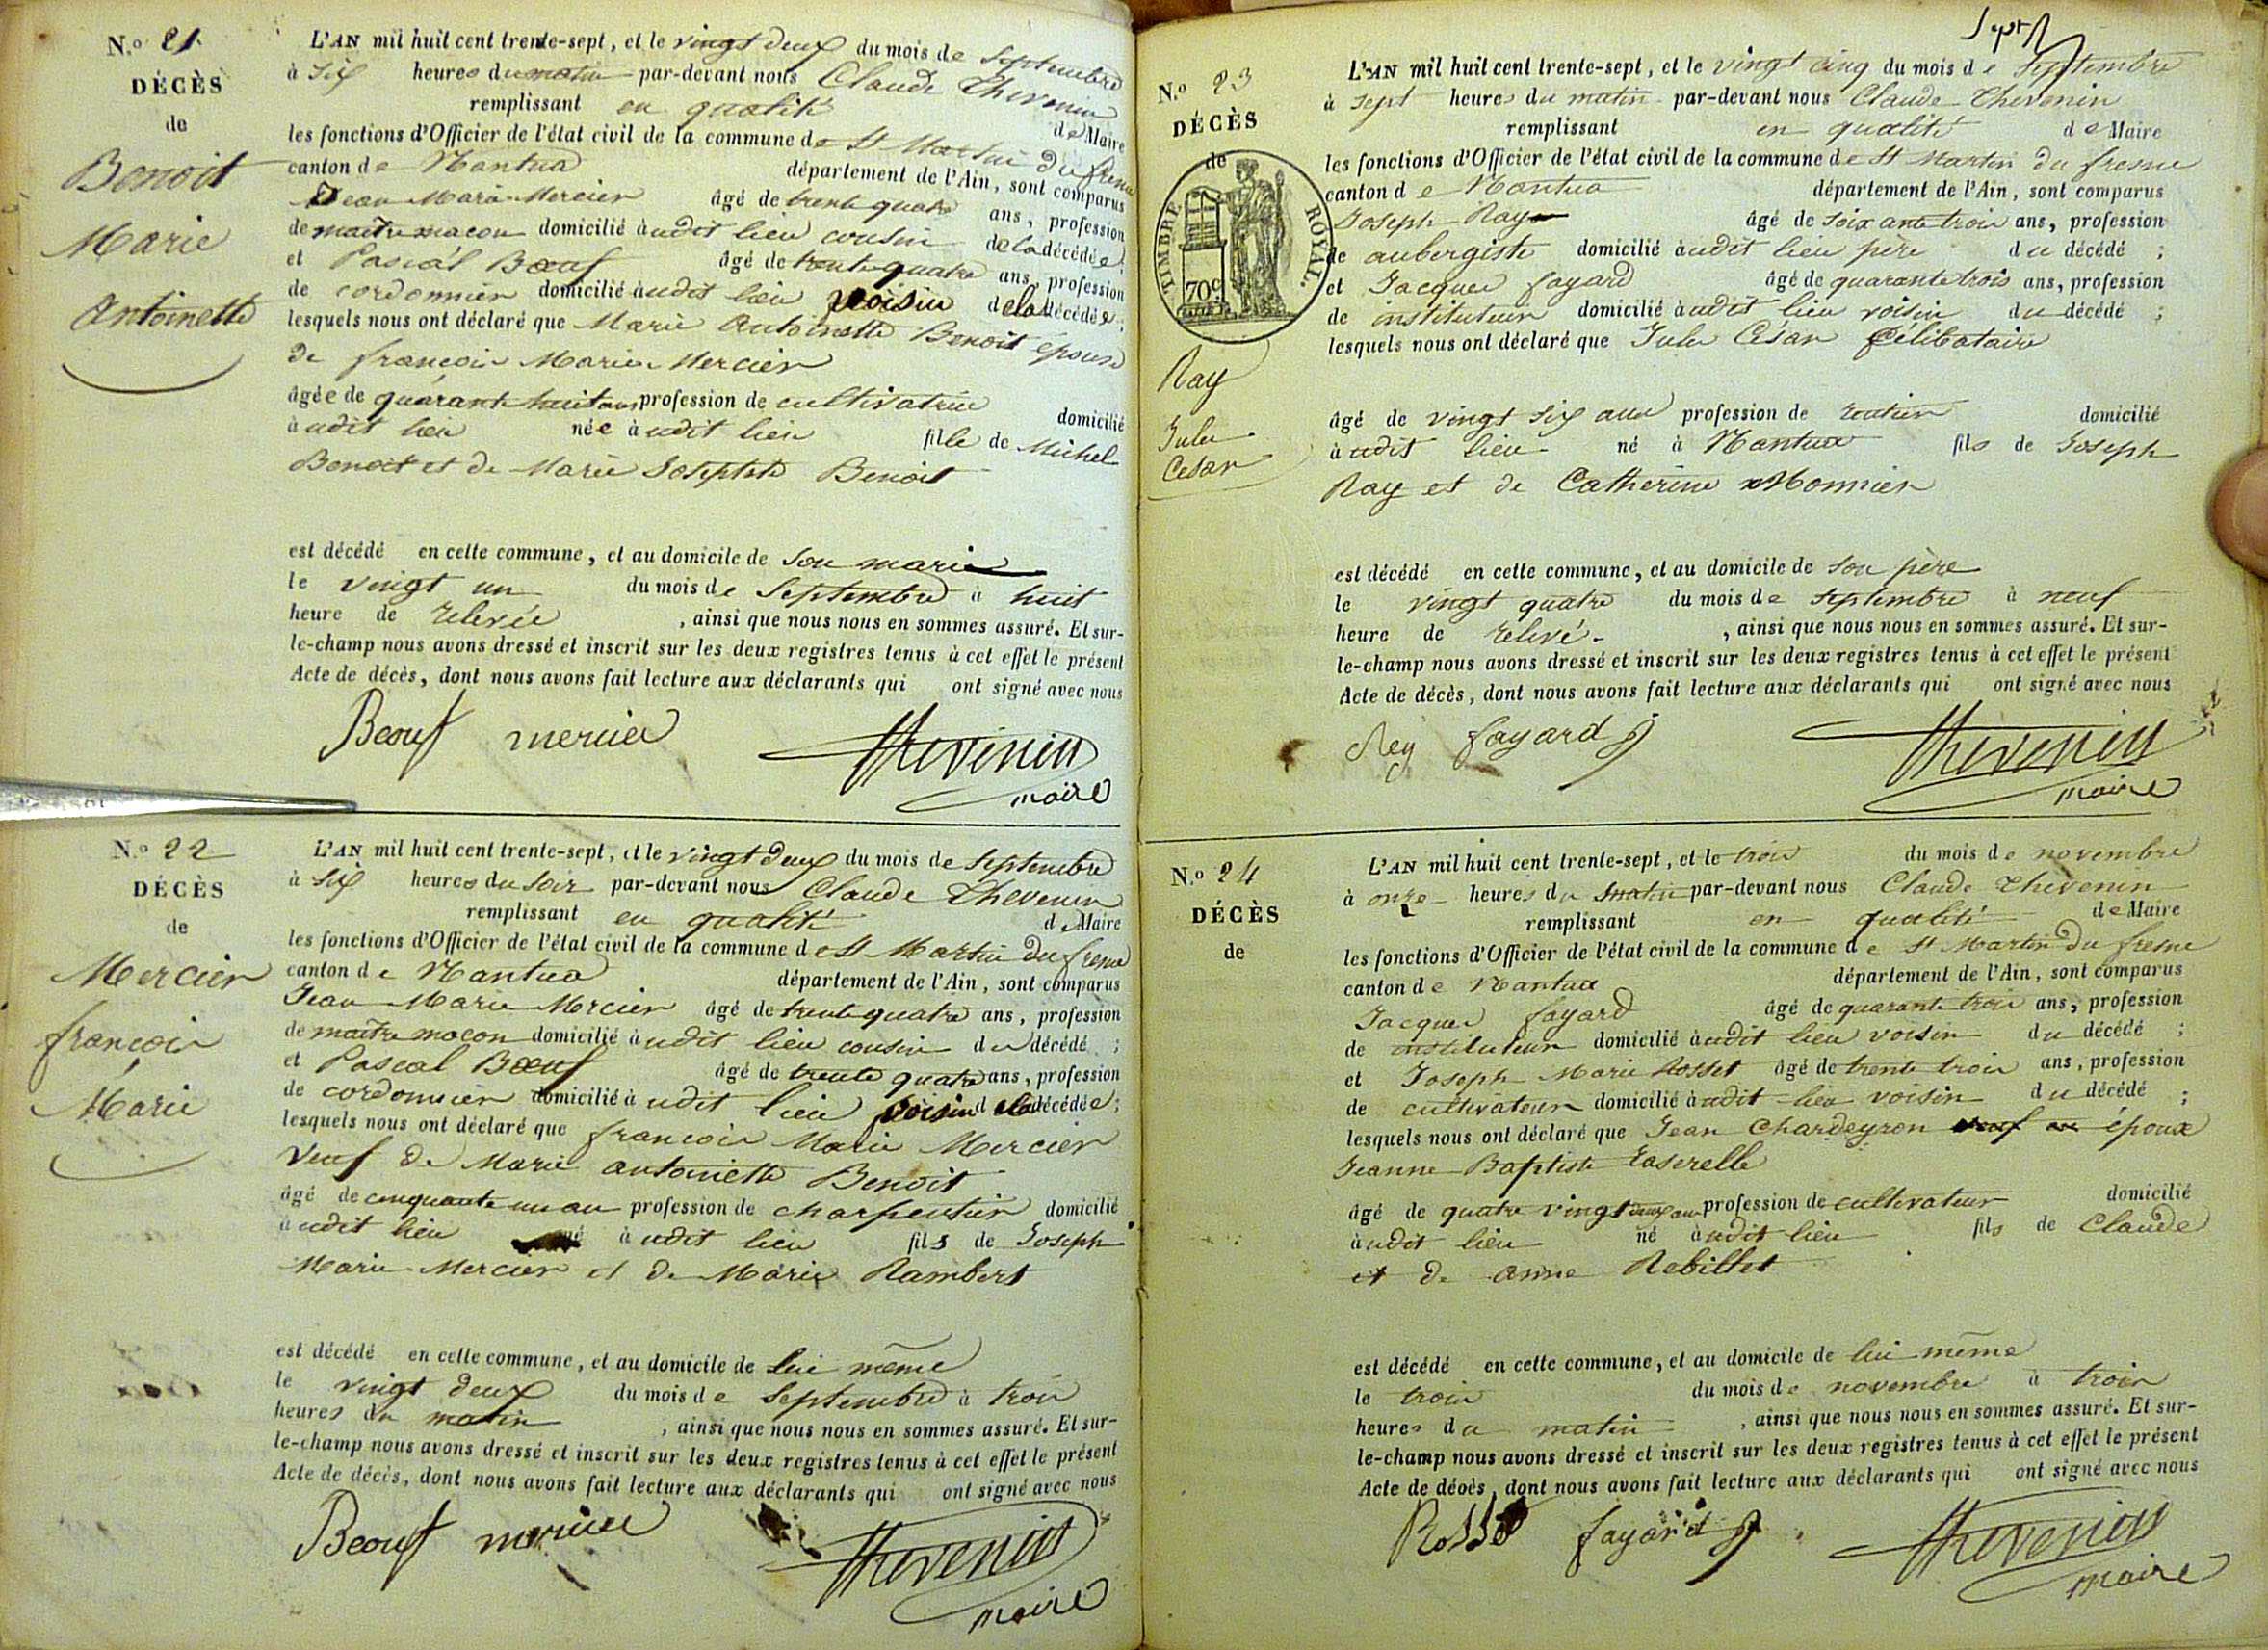 N.o 21.
DÉCÈS
de
Benoit
Marie
Antoinette
L'AN mil huit cent trente-sept, et le vingt deux du mois de Septembre
à Six heures du matin par-devant nous Claude Thevenin
remplissant en qualité de Maire
les fonctions d'Officier de l'état civil de la commune de St Martin du fresne
canton de Nantua département de l'Ain, sont comparus
Jean Marie Mercier âgé de trente quatre ans, profession
de maître macon domicilié audit lieu cousin de la décédée;
et Pascal Bœuf âgé de trente quatre ans, profession
de cordonnier domicilié audit lieu voisin de la décédée;
lesquels nous ont déclaré que Marie Antoinette Benoit épouse
de françois Marie Mercier
âgée de quarante huit ans profession de cultivatrice domicilié
audit lieu née audit lieu fille de Michel
Benoit et de Marie Josephte Benoit
est décédé en cette commune, et au domicile de son marie
le vingt un du mois de Septembre à huit
heure de relevée , ainsi que nous nous en sommes assuré. Et sur-
le-champ nous avons dressé et inscrit sur les deux registres tenus à cet effet le présent
Acte de décès, dont nous avons fait lecture aux déclarants qui ont signé avec nous
Beouf mercier Thevenin
maire
N.o 22
DÉCÈS
de
Mercier
françois
Marie
L'AN mil huit cent trente-sept, et le vingt deux du mois de Septembre
à six heures du soir par-devant nous Claude Thevenin
remplissant en qualité de Maire
les fonctions d'Officier de l'état civil de la commune de St Martin du fresne
canton de Nantua département de l'Ain, sont comparus
Jean Marie Mercier âgé de trente quatre ans, profession
de maître macon domicilié audit lieu cousin du décédé;
et Pascal Bœuf âgé de trente quatre ans, profession
de cordonnier domicilié audit lieu voisin de la décédée;
lesquels nous ont déclaré que françois Marie Mercier
veuf de Marie antoinette Benoit
âgé de cinquante un an profession de charpentier domicilié
audit lieu né audit lieu fils de Joseph
Marie Mercier et de Marie Rambert
est décédé en cette commune, et au domicile de lui même
le vingt deux du mois de Septembre à trois
heures du matin , ainsi que nous nous en sommes assuré. Et sur-
le-champ nous avons dressé et inscrit sur les deux registres tenus à cet effet le présent
Acte de décès, dont nous avons fait lecture aux déclarants qui ont signé avec nous
Beouf mercier Thevenin
maire
N.o 23
DÉCÈS
de
TIMBRE ROYAL.
70c
Ray
Jules
Cesar
L'AN mil huit cent trente-sept, et le vingt cinq du mois de Septembre
à sept heures du matin par-devant nous Claude Thevenin
remplissant en qualité de Maire
les fonctions d'Officier de l'état civil de la commune de St Martin du fresne
canton de Nantua département de l'Ain, sont comparus
Joseph Ray âgé de soixante trois ans, profession
de aubergiste domicilié audit lieu père du décédé;
et Jacques fayard âgé de quarante trois ans, profession
de instituteur domicilié audit lieu voisin du décédé;
lesquels nous ont déclaré que Jules César Célibataire
âgé de vingt six ans profession de routier domicilié
audit lieu né à Nantua fils de Joseph
Ray et de Catherine Monnier
est décédé en cette commune, et au domicile de son père
le vingt quatre du mois de septembre à neuf
heure de relevé. , ainsi que nous nous en sommes assuré. Et sur-
le-champ nous avons dressé et inscrit sur les deux registres tenus à cet effet le présent
Acte de décès, dont nous avons fait lecture aux déclarants qui ont signé avec nous
Rey fayard j Thevenin
maire
N.o 24
DÉCÈS
de
L'AN mil huit cent trente-sept, et le trois du mois de novembre
à onze heures du matin par-devant nous Claude Thevenin
remplissant en qualité de Maire
les fonctions d'Officier de l'état civil de la commune de St Martin du fresne
canton de Nantua département de l'Ain, sont comparus
Jacques fayard âgé de quarante trois ans, profession
de instituteur domicilié audit lieu voisin du décédé;
et Joseph Marie Rosset âgé de trente trois ans, profession
de cultivateur domicilié audit lieu voisin du décédé;
lesquels nous ont déclaré que Jean Chardeyron veuf époux
Jeanne Baptiste
âgé de quatre vingt deux ans profession de cultivateur domicilié
audit lieu né audit lieu fils de Claude
et de anne Rebillet
est décédé en cette commune, et au domicile de lui même
le trois du mois de novembre à trois
heures du matin , ainsi que nous nous en sommes assuré. Et sur-
le-champ nous avons dressé et inscrit sur les deux registres tenus à cet effet le présent
Acte de décès, dont nous avons fait lecture aux déclarants qui ont signé avec nous
fayard j Thevenin
maire